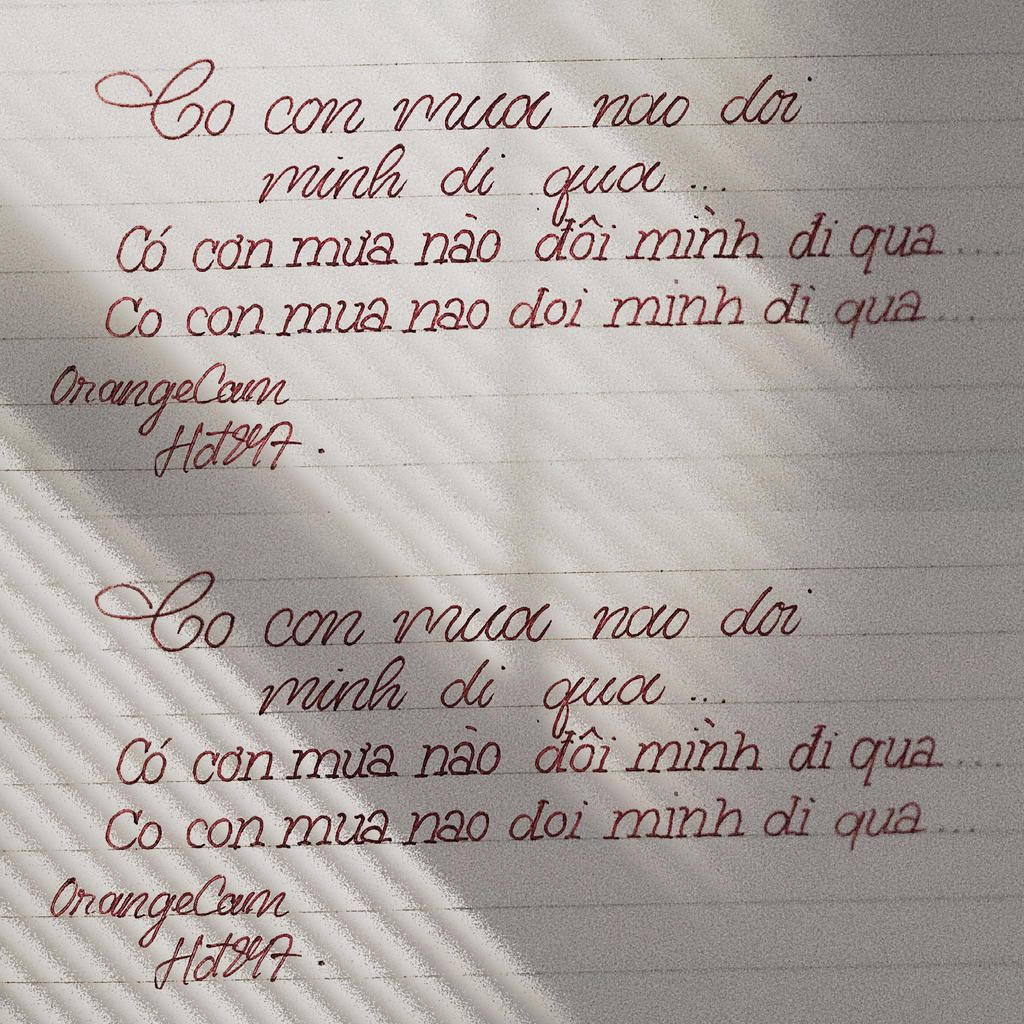 Co con mua nao doi
minh di qua...
Có cơn mưa nào đôi mình đi qua....
Co con mua nao doi minh di qua...
OrangeCam
Hdt847.
Co con mua nao doi
minh di qua...
Có cơn mưa nào đôi mình đi qua....
Co con mua nao doi minh di qua...
OrangeCam